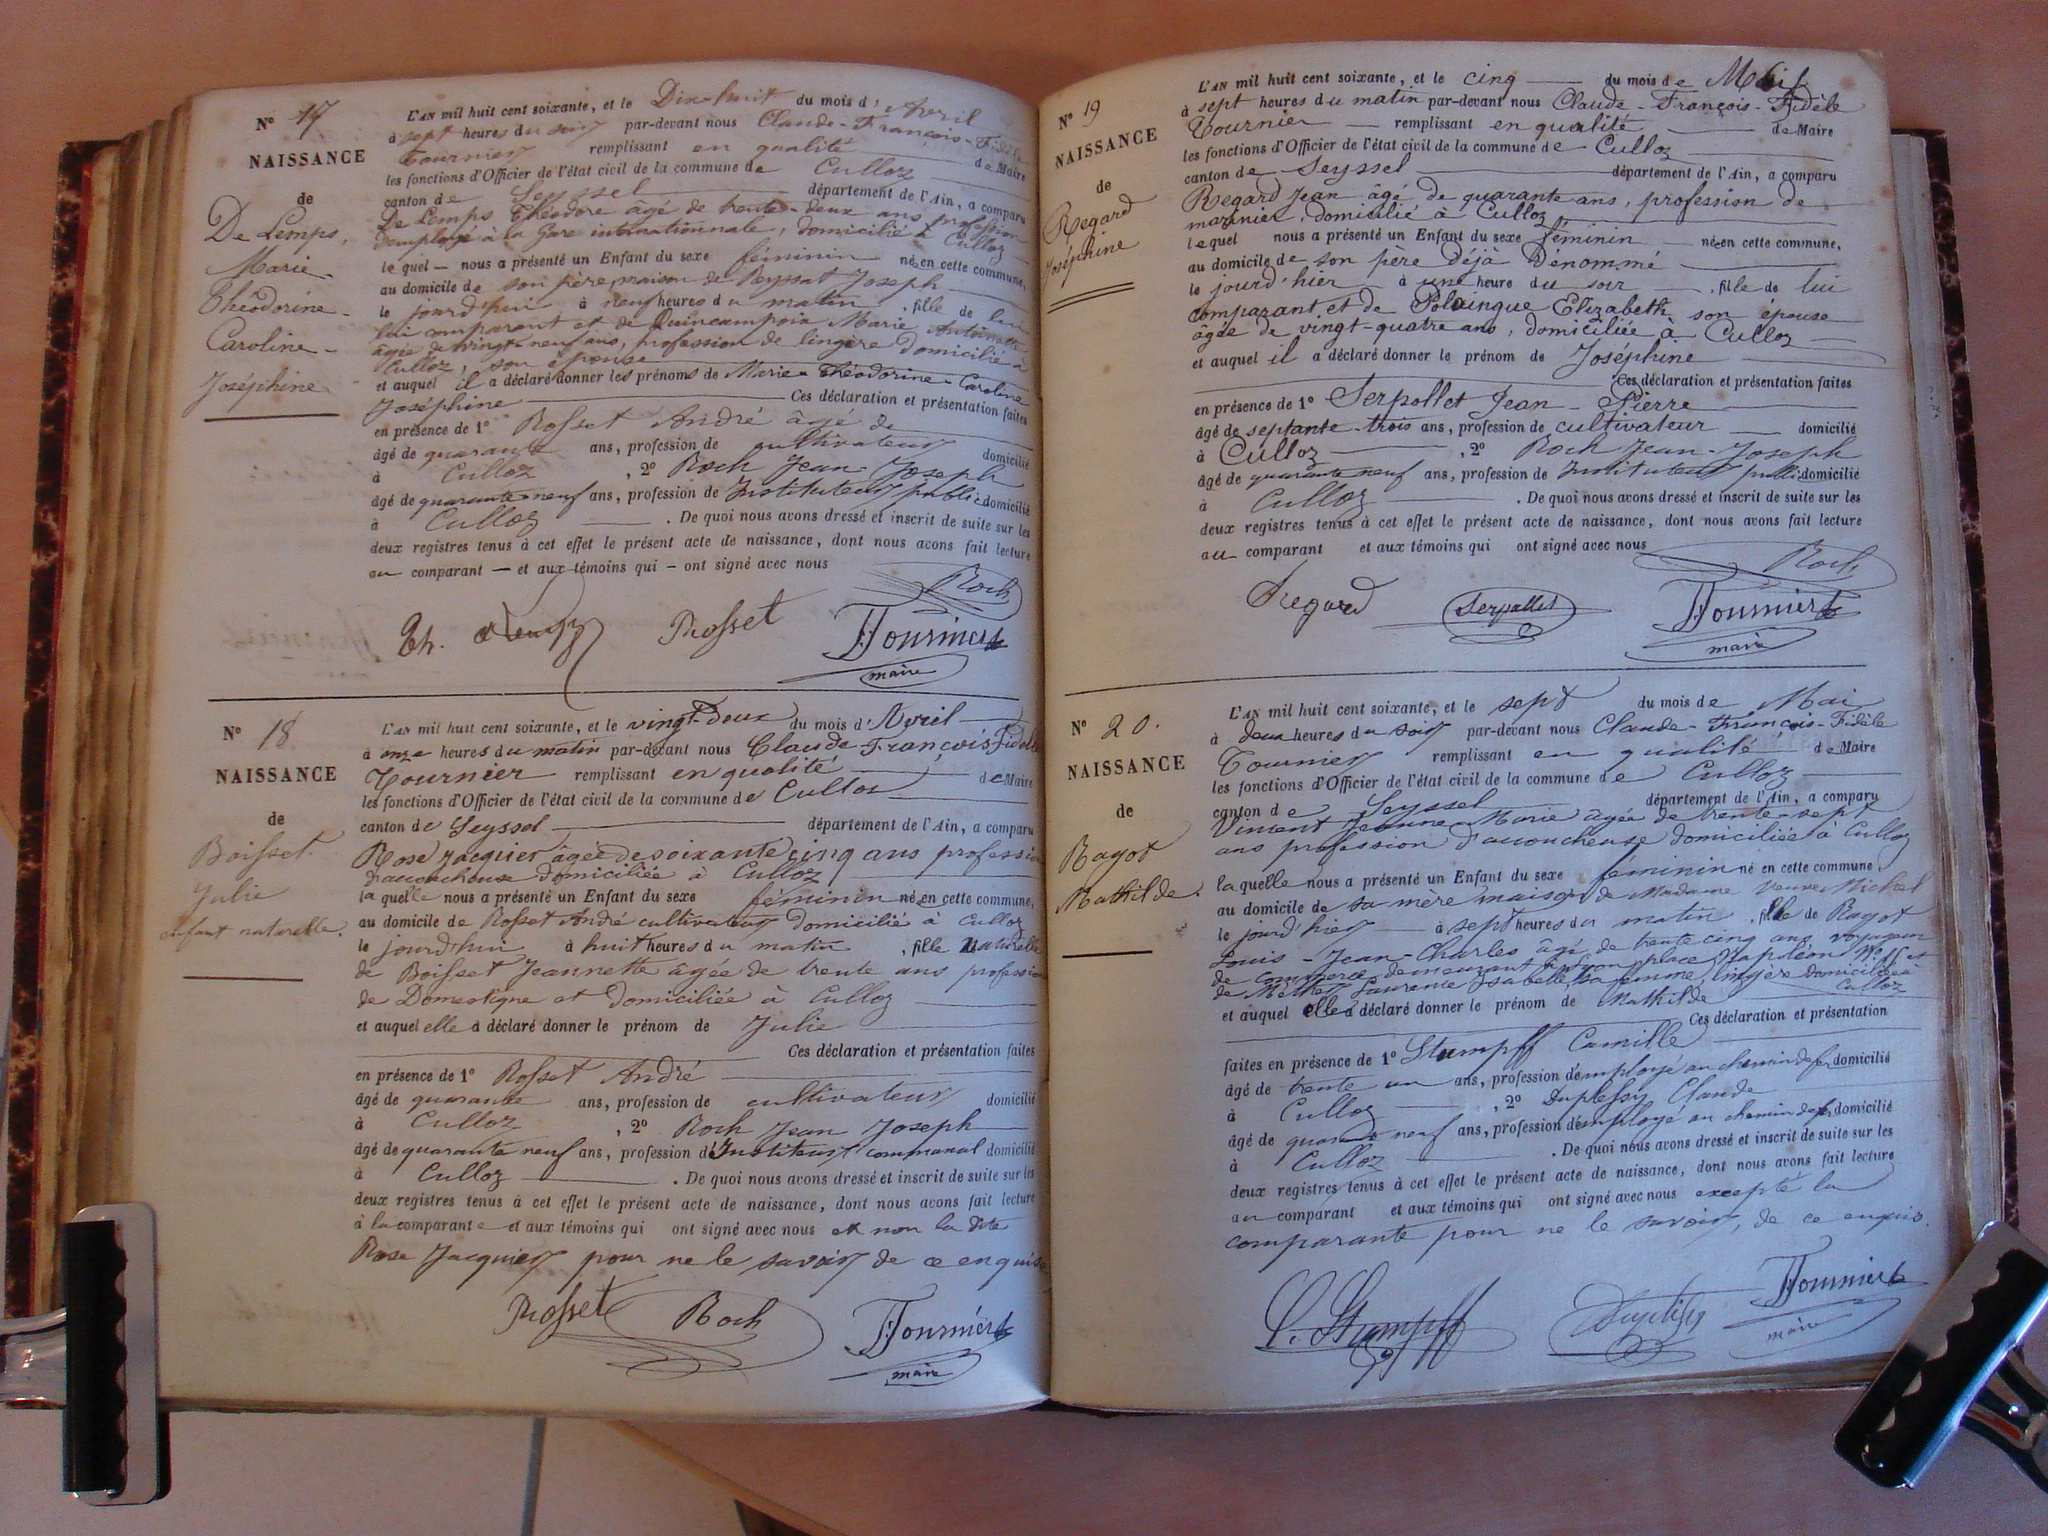 N° 17
NAISSANCE
de
De Lemps,
Marie-
Théodorine-
Caroline-
Joséphine
L'AN mil huit cent soixante, et le Dix-huit du mois d'Avril
à sept heures du soir par-devant nous Claude-François-Fidèle
Tournier remplissant en qualité de Maire
les fonctions d'Officier de l'état civil de la commune de Culloz
canton de Seyssel département de l'Ain, a comparu
De Lemps Théodore âgé de trente-deux ans profession
d'employé à la Gare internationnale, domicilié à Culloz
le quel - nous a présenté un Enfant du sexe féminin né en cette commune,
au domicile de son père, maison de Peyssat Joseph
le jourd'hui à neuf heures du matin, fille de
lui comparant et de Quincampoix Marie Antoinette
âgée de vingt-neuf ans, profession de lingère domiciliée à
Culloz, son épouse
et auquel il a déclaré donner les prénoms de Marie-Théodorine-Caroline
Joséphine Ces déclaration et présentation faites
en présence de 1° Rosset André âgé de
âgé de quarante ans, profession de cultivateur domicilié
à Culloz, 2° Roch Jean-Joseph
âgé de quarante-neuf ans, profession de Instituteur public domicilié
à Culloz. De quoi nous avons dressé et inscrit de suite sur les
deux registres tenus à cet effet le présent acte de naissance, dont nous avons fait lecture
au comparant - et aux témoins qui - ont signé avec nous
Roch
Th. Rosset Tournier
maire
N° 18
NAISSANCE
de
Boisset
Julie
enfant naturelle.
L'AN mil huit cent soixante, et le vingt-Deux du mois d'Avril
à onze heures du matin par-devant nous Claude-François Fidèle
Tournier remplissant en qualité de Maire
les fonctions d'Officier de l'état civil de la commune de Culloz
canton de Seyssel département de l'Ain, a comparu
Rose Jacquier âgée de soixante cinq ans profession
d'accoucheuse domiciliée à Culloz
laquelle nous a présenté un Enfant du sexe féminin né en cette commune,
au domicile de Rosset André cultivateur domicilié à Culloz
le jourd'hui à huit heures du matin, fille naturelle
de Boisset Jeannette âgée de trente ans profession
de Domestique et domiciliée à Culloz
et auquel elle a déclaré donner le prénom de Julie
Ces déclaration et présentation faites
en présence de 1° Rosset André
âgé de quarante ans, profession de cultivateur domicilié
à Culloz, 2° Roch Jean Joseph
âgé de quarante neuf ans, profession d'Instituteur communal domicilié
à Culloz. De quoi nous avons dressé et inscrit de suite sur les
deux registres tenus à cet effet le présent acte de naissance, dont nous avons fait lecture
à la comparante et aux témoins qui ont signé avec nous et non la dite
Rose Jacquier pour ne le savoir de ce enquise
Rosset Roch Tournier
maire
N° 19
NAISSANCE
de
Regard
Joséphine
L'AN mil huit cent soixante, et le cinq du mois de Mai
à sept heures du matin par-devant nous Claude-François-Fidèle
Tournier remplissant en qualité de Maire
les fonctions d'Officier de l'état civil de la commune de Culloz
canton de Seyssel département de l'Ain, a comparu
Regard Jean âgé de quarante ans, profession de
marinier, domicilié à Culloz
lequel nous a présenté un Enfant du sexe féminin née en cette commune,
au domicile de son père déjà Dénommé
le jourd'hier à une heure du soir, fille de lui
comparant et de Polainque Elizabeth son épouse
âgée de vingt-quatre ans, domiciliée à Culloz
et auquel il a déclaré donner le prénom de Joséphine
Ces déclaration et présentation faites
en présence de 1° Serpollet Jean-Pierre
âgé de septante-trois ans, profession de cultivateur domicilié
à Culloz, 2° Roch Jean-Joseph
âgé de quarante neuf ans, profession de Instituteur public domicilié
à Culloz. De quoi nous avons dressé et inscrit de suite sur les
deux registres tenus à cet effet le présent acte de naissance, dont nous avons fait lecture
au comparant et aux témoins qui ont signé avec nous
Roch
Regard Serpollet Tournier
maire
N° 20.
NAISSANCE
de
Ragot
Mathilde.
L'AN mil huit cent soixante, et le sept du mois de Mai
à deux heures du soir par-devant nous Claude-François-Fidèle
Tournier remplissant en qualité de Maire
les fonctions d'Officier de l'état civil de la commune de Culloz
canton de Seyssel département de l'Ain, a comparu
Vincent Jeanne-Marie âgée de trente-sept
ans profession d'accoucheuse domiciliée à Culloz
laquelle nous a présenté un Enfant du sexe féminin né en cette commune,
au domicile de sa mère maison de Madame Veuve Michel
le jourd'hier à sept heures du matin, fille de Ragot
Louis-Jean-Charles âgé de trente cinq ans voyageur
de commerce demeurant à Lyon place Napoléon N° 11 et
de Laurence Isabelle sa femme, lingère domiciliée à
Culloz
et auquel elle a déclaré donner le prénom de Mathilde
Ces déclaration et présentation
faites en présence de 1° Stumpff Camille
âgé de trente un ans, profession d'employé au chemin de fer domicilié
à Culloz, 2° Duplessy Claude
âgé de quarante neuf ans, profession d'employé au chemin de fer domicilié
à Culloz. De quoi nous avons dressé et inscrit de suite sur les
deux registres tenus à cet effet le présent acte de naissance, dont nous avons fait lecture
au comparant et aux témoins qui ont signé avec nous excepté la
comparante pour ne le savoir, de ce enquis.
C. Stumpff Duplessy Tournier
maire